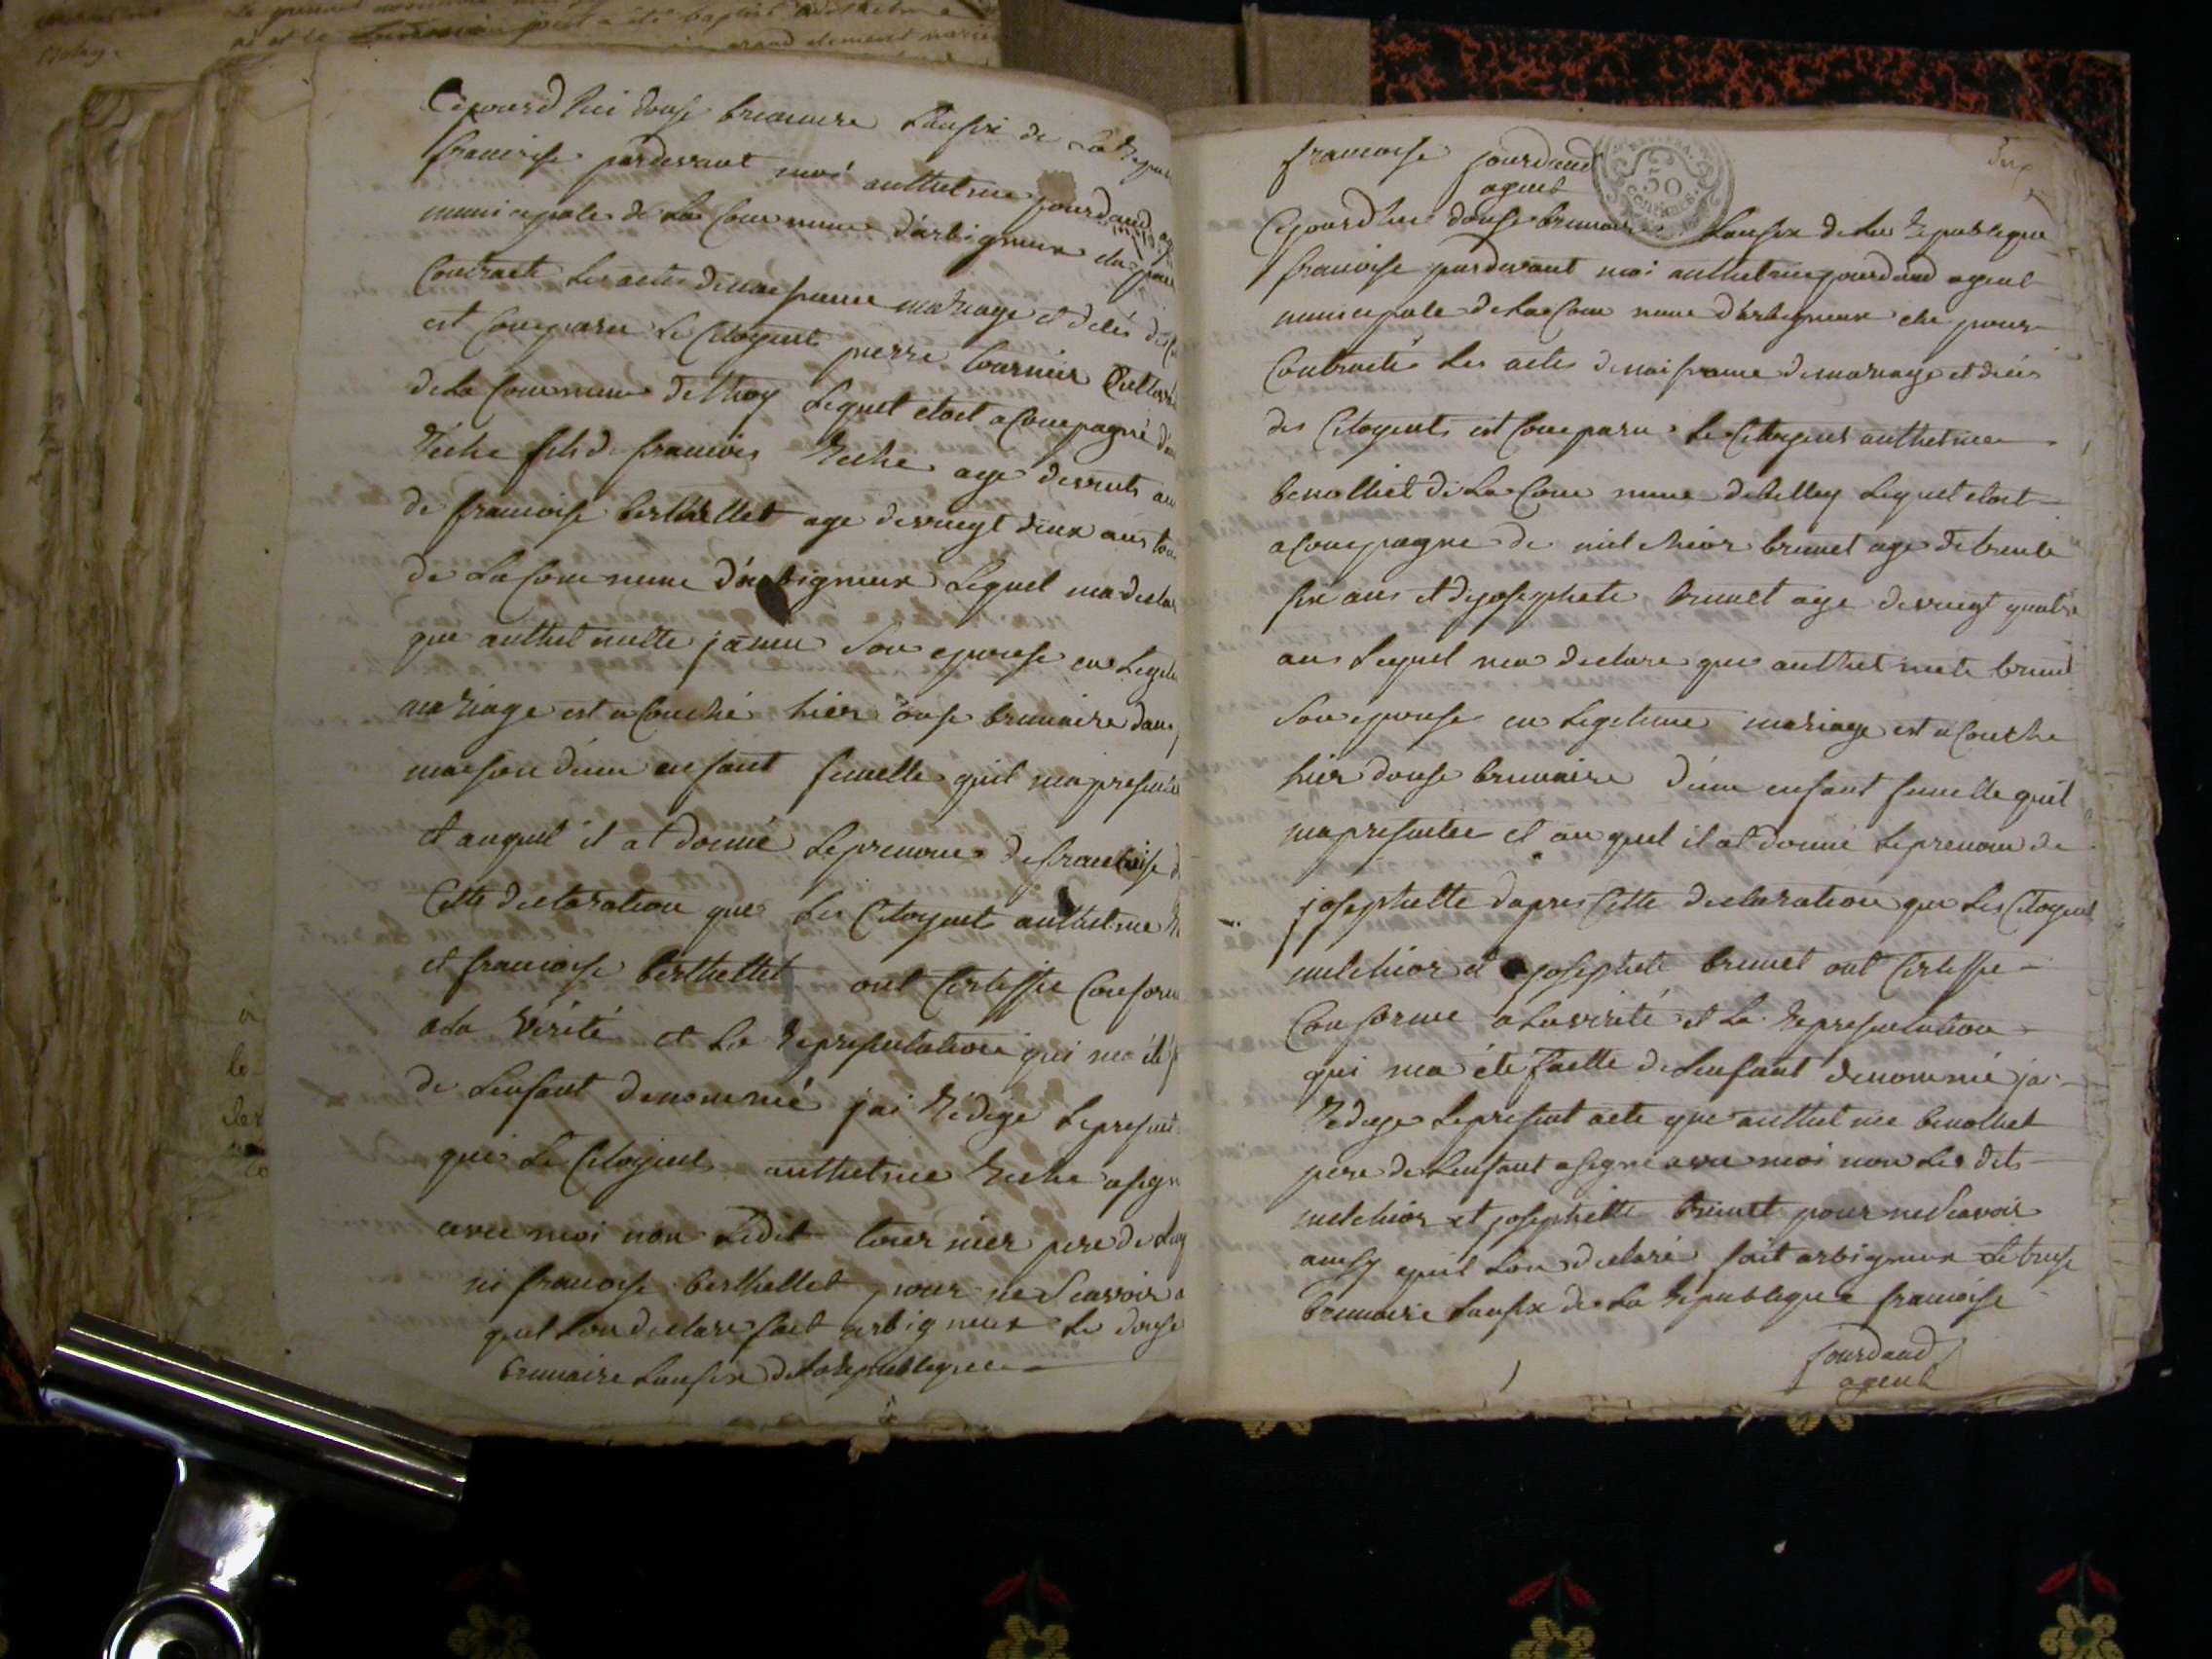 Cejourd'hui douse brumaire Lansix de La Repu
francoise pardevant moi anthelme jourdand
municipale de La Commune d'arbigneux elu pour
Contracte Les actes de naisance mariage et deces des
est Comparu Le Citoyent pierre tournier Cultiv
de La Commune de Lequel etoit acompagné d'an
Reche fils de francois Reche age de vents ans
de francoise berthellet age de vingt deux ans tou
de La Commune d'arbigneux Lequel ma declar
que anthelmette janin son epouse en Legiti
mariage est acouché hier onse brumaire dans
maison d'une enfant femelle quil ma presenté
et auquel il at donné Le prenom de francoise d
Cette declaration que Les Citoyent anthelme R
et francoise berthellet ont Certiffie Conform
a La Vérité et La Representation qui ma été f
de Lenfant denommé jai Rédige Le present
que Le Citoyent anthelme Reche a sign
avec moi non Ledit tournier pere de Len
ni francoise berthellet pour ne Scavoir a
quil Lon declare fait arbigneux Le douse
brumaire Lansix de La Republique
francoise jourdand
agent
50
Centimes
Cejourd'hui douse brumaire Lansix de La Republique
francoise pardevant moi anthelme jourdand agent
municipale de La Commune d'arbigneux elu pour
Contracté Les actes de naisance de mariage et deces
des Citoyents est Comparu Le Citoyent anthelme
benolliet de La Commune de belley Lequel etoit
acompagne de melchior brunet age de trente
six ans et de josephete brunet age de vingt quatre
ans Lequel ma declare que anthelmete brunet
Son epouse en Legitime mariage est acouche
hier douse brumaire d'une enfant femelle quil
ma presentée et au quel il at donné Le prenom de
josephette dapres Cette declaration que Les Citoyent
melchior et josephete brunet ont Certiffie
Conforme a La verité et La Representation
qui ma été faitte de Lenfant denommé jai
Redige Le present acte que anthelme benolliet
pere de Lenfant a signé avec moi non Les dits
melchior et josephette brunet pour ne Scavoir
ainsy quil Lon declaré fait arbigneux Le treise
brumaire Lansix de La Republique francoise
jourdand
agent